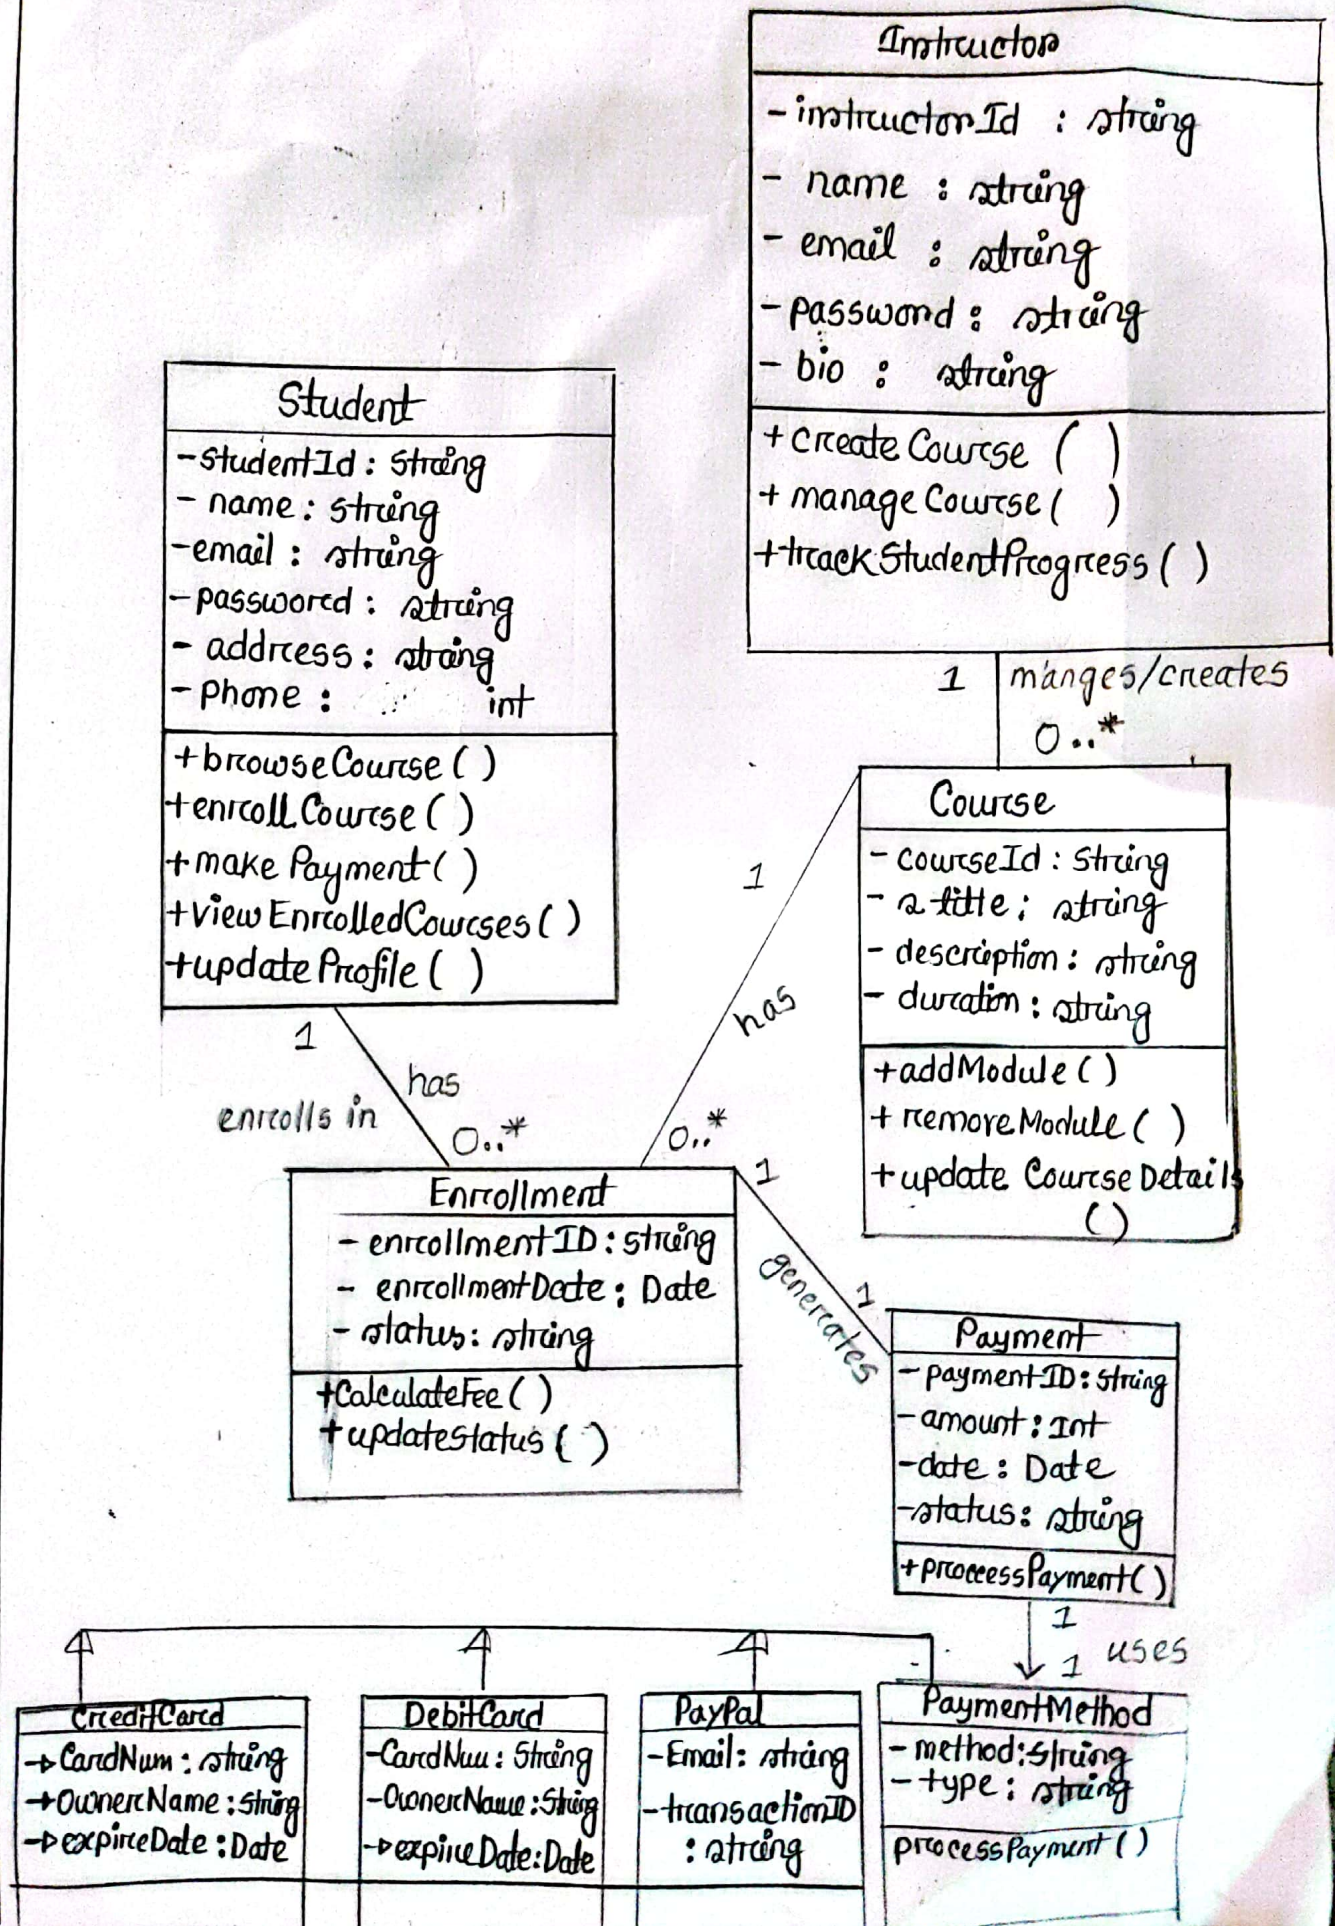 Instructor
- instructorId : string
- name : string
- email : string
- password : string
- bio : string
+ createCourse ( )
+ manageCourse ( )
+ trackStudentProgress ( )
1 manges/creates
0..*
Student
- studentId : String
- name : string
- email : string
- password : string
- address : string
- Phone : int
+ browseCourse ( )
+ enrollCourse ( )
+ make Payment ( )
+ viewEnrolledCourses ( )
+ updateProfile ( )
Course
- courseId : String
- title : string
- description : string
- duration : string
+ addModule ( )
+ removeModule ( )
+ update CourseDetails
( )
1
has
0..*
1
has
enrolls in
0..*
Enrollment
- enrollmentID : string
- enrollmentDate : Date
- status : string
+ CalculateFee ( )
+ updateStatus ( )
1
generates
1
Payment
- paymentID : String
- amount : Int
- date : Date
- status : string
+ proccessPayment ( )
1
uses
1
CreditCard
- CardNum : string
- OwnerName : String
- expireDate : Date
DebitCard
- CardNuu : String
- OwnerName : String
- expireDate : Date
PayPal
- Email : string
- transactionID
: string
PaymentMethod
- method : String
- type : string
processPayment ( )